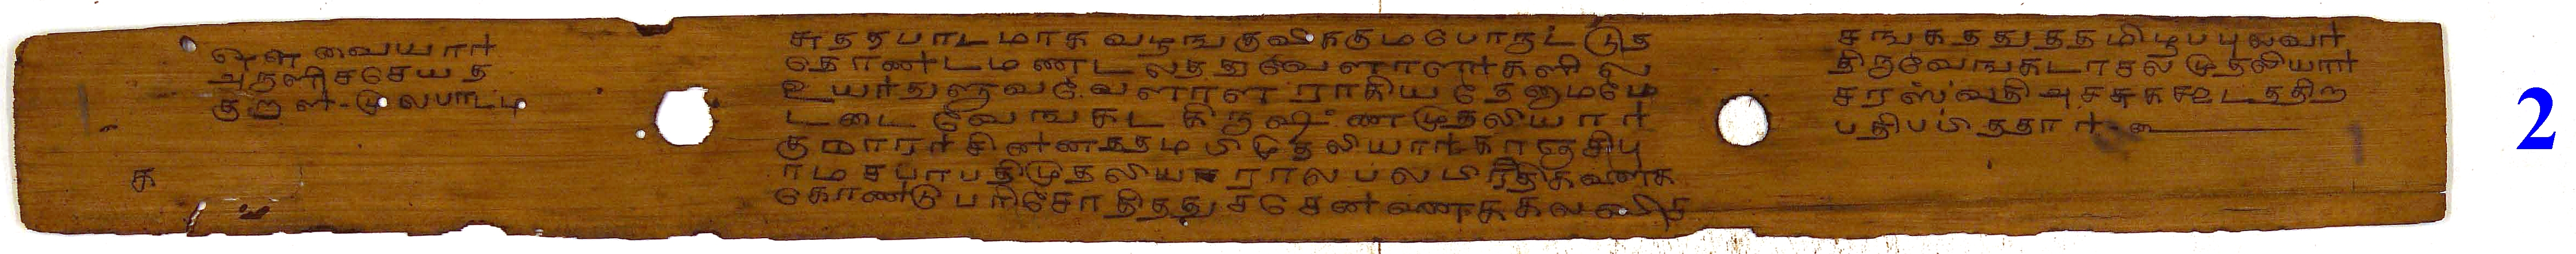 ஒளவையார
அருளிசசெயத
குறள-மூலபாடம
க
சுததபாடமாக வழங்குஷககுமபொருட்டுத
தொண்டமணடலத்துவேளாளர்களில
உயர்துளுவவேளாளராகிய
டடை வேஙகட கிருஷ்ணமுதலியார்
குமாரர் சின்னததமபிமுதலியார் காஞ்சிபு
ரமசபாபதிமுதலியாரால பல பிரதிகளைக
கொண்டு பரிசோதிதது ச சென்னைக கலவிச
சஙகதததுததமிழபபுலவர்
திருவேஙகடாசலமுதலியார்
சரஸ்வதி அசசுககூடததிற
பதிபபிததார்
2